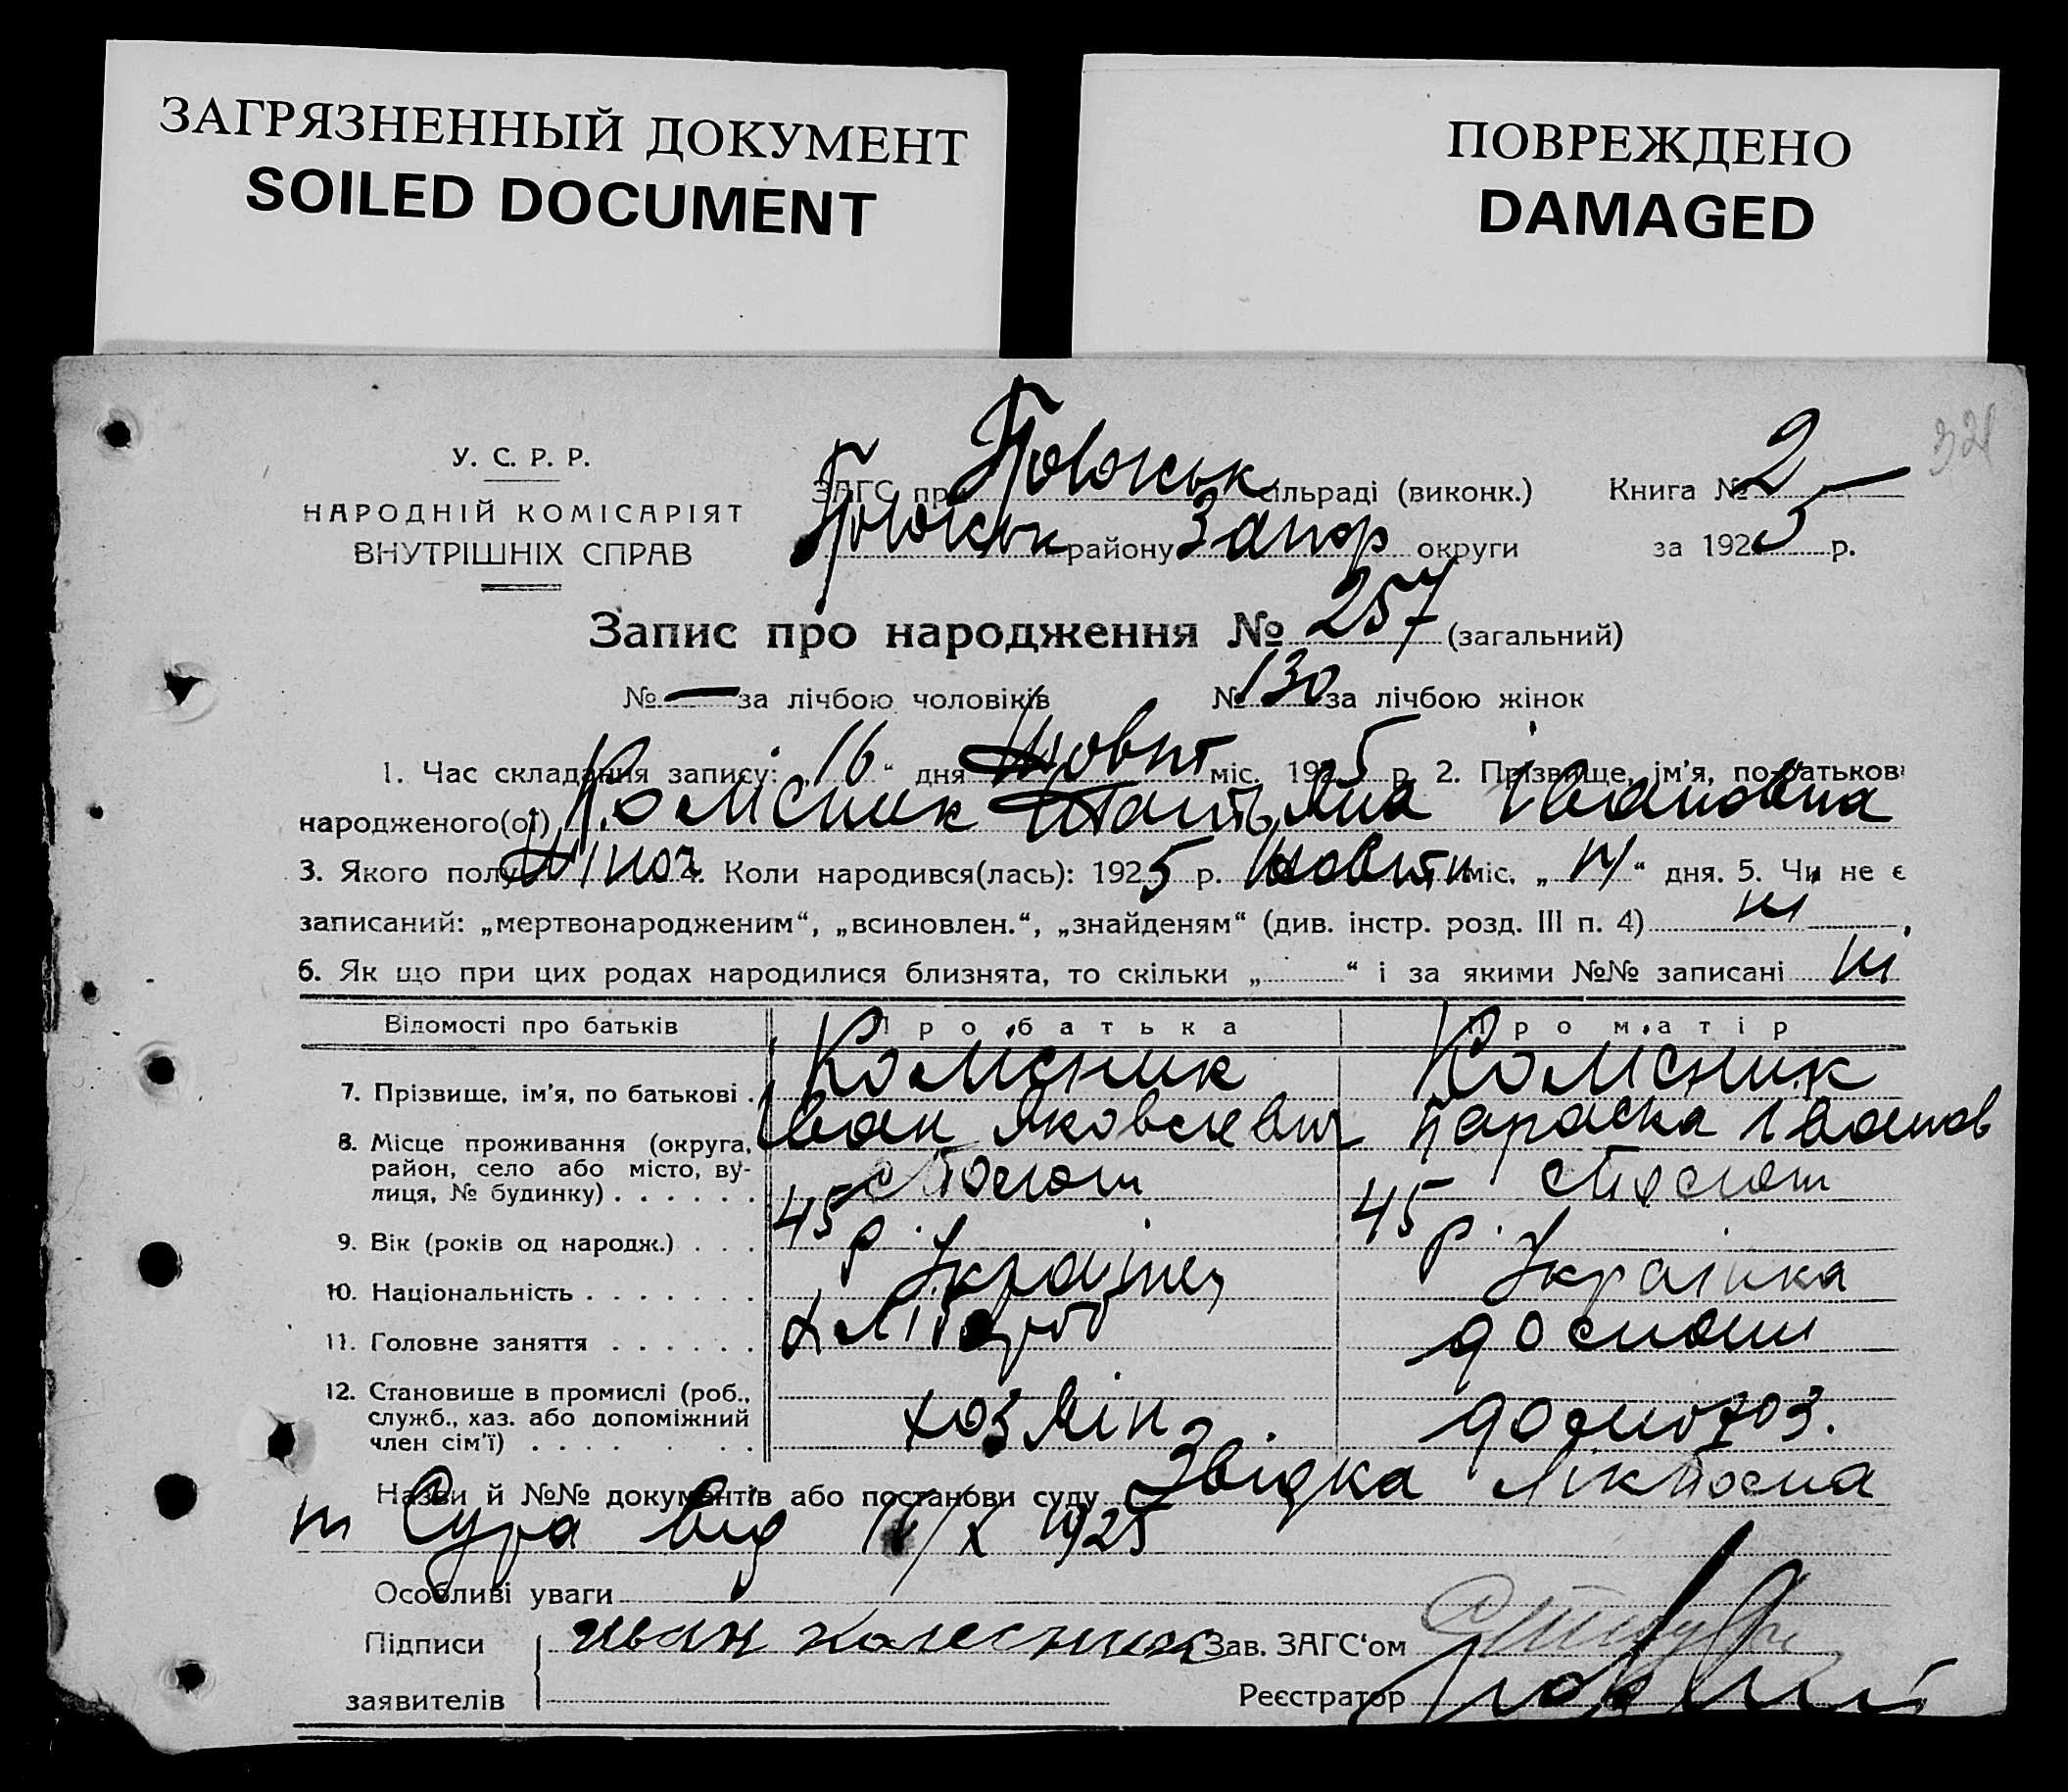 ЗАГРЯЗНЕННЫЙ ДОКУМЕНТ
SOILED DOCUMENT
ПОВРЕЖДЕНО
DAMAGED
У. С. Р. Р.
НАРОДНІЙ КОМІСАРІЯТ
ВНУТРІШНІХ СПРАВ
ЗАГС при сільраді (виконк.) Книга № 2
району Запор округи за 1925 р.
Запис про народження № 257 (загальний)
№ — за лічбою чоловіків № 130 за лічбою жінок
1. Час складання запису: „16“ дня Жовт міс. 1925 р. 2. Прізвище, ім'я, по батькові
народженого(ої) Колісник Івановна
3. Якого полу жіноч 4. Коли народився(лась): 1925 р. Жовтн міс. „ “ дня. 5. Чи не є
записаний: „мертвонародженим“, „всиновлен.“, „знайденям“ (див. інстр. розд. III п. 4) ні
6. Як що при цих родах народилися близнята, то скільки „ “ і за якими №№ записані ні
Відомості про батьків Про батька Про матір
7. Прізвище, ім'я, по батькові . Колісник Колісник
Іван Яковлевич Параска Іванов
8. Місце проживання (округа,
район, село або місто, ву-
лиця, № будинку) . . . . . .
9. Вік (років од народж.) . . . 45 р. 45 р.
10. Національність . . . . . . . Українец Українка
11. Головне заняття . . . . . . хлібороб
12. Становище в промислі (роб.,
служб., хаз. або допоміжний
член сім'ї) . . . . . . . хозяін
Назви й №№ документів або постанови суду Звідка
Сура від /X 1925
Особливі уваги
Підписи иван колесник Зав. ЗАГС'ом
заявителів Реєстратор